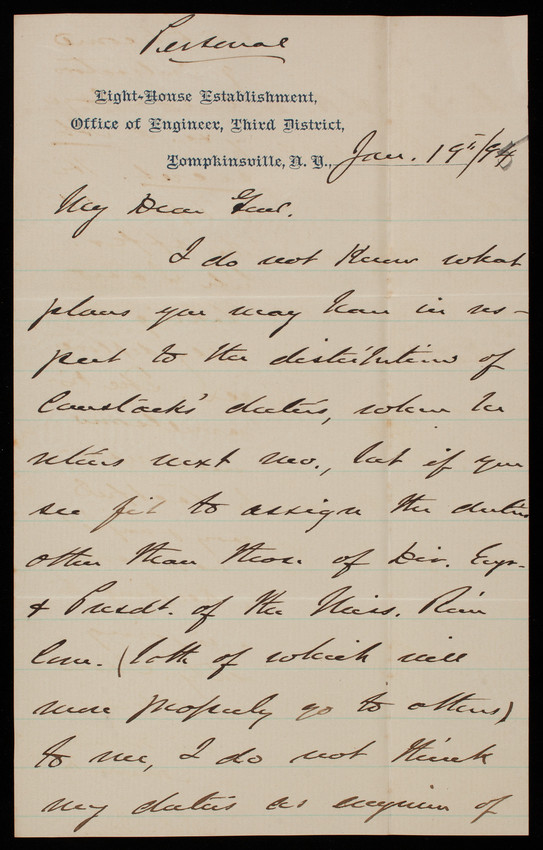 Personal
Light-House Establishment,
Office of Engineer, Third District,
Tompkinsville, N. Y., Jan. 19th/95
My Dear Genl.
I do not know what
plans you may have in res-
pect to the distribution of
Comstock's duties, when he
retires next mo., but if you
see fit to assign the duties
other than those of Div. Engr.
& Presdt. of the Miss. River
Com. (both of which will
more properly go to others)
to me, I do not think
my duties as engineer of